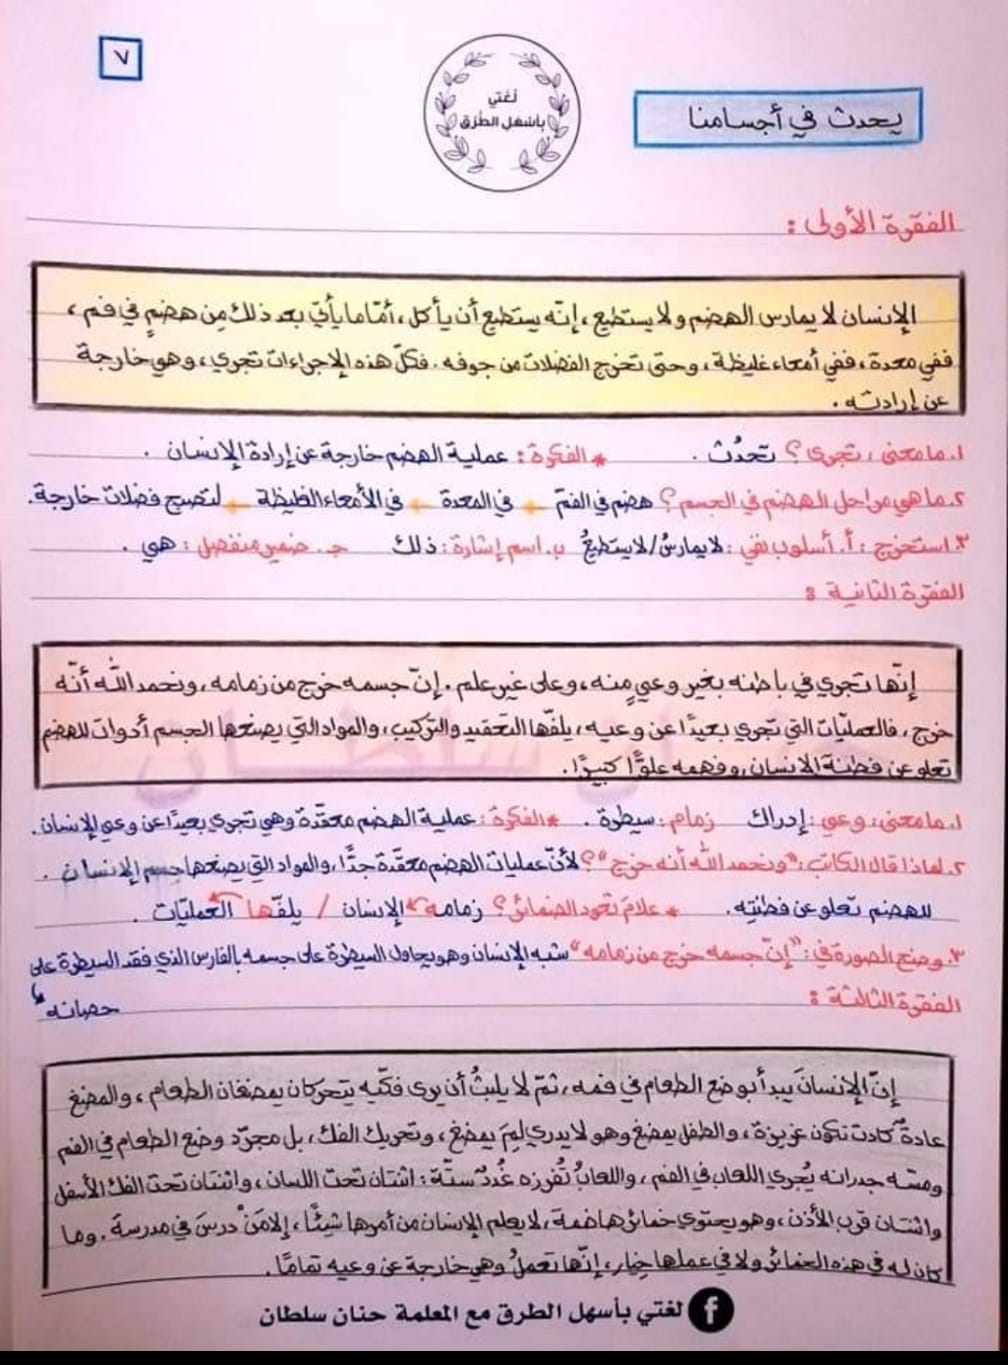 ٧
لغتي
بأسهل الطرق
يحدث في أجسامنا
الفقرة الأولى :
الإنسان لا يمارس الهضم ولا يستطيع ، إنّه يستطيع أن يأكل ، أمّا ما يأتي بعد ذلك مِن هضمٍ في فم ،
ففي معدة ، ففي أمعاء غليظة ، وحتى تخرج الفضلات من جوفه . فكلّ هذه الإجراءات تجري ، وهي خارجة
عن إرادته .
١. ما معنى : تجري ؟ تحدُث . * الفكرة : عملية الهضم خارجة عن إرادة الإنسان .
٢. ما هي مراحل الهضم في الجسم ؟ هضم في الفم ← في المعدة ← في الأمعاء الغليظة ← لتصبح فضلات خارجة .
٣. استخرج : أ. أسلوب نفي : لا يمارسُ / لا يستطيعُ ب. اسم إشارة : ذلك ج. ضمير منفصل : هي .
الفقرة الثانية :
إنّها تجري في باطنه بغير وعيٍ منه ، وعلى غير علم . إنّ جسمه خرج من زمامه ، ونحمد الله أنّه
خرج ، فالعمليّات التي تجري بعيدًا عن وعيه ، يلفّها التعقيد والتركيب ، والمواد التي يصنعها الجسم أدوات للهضم
تعلو عن فطنة الإنسان وفهمه علوًّا كبيرًا .
١. ما معنى : وعي : إدراك زمام : سيطرة . * الفكرة : عملية الهضم معقّدة وهي تجري بعيدًا عن وعي الإنسان .
٢. لماذا قال الكاتب : "ونحمد الله أنه خرج" ؟ لأنّ عمليات الهضم معقّدة جدًّا ، والمواد التي يصنعها جسم الإنسان .
للهضم تعلو عن فطنتِه . * علامَ تعود الضمائر ؟ زمامه ← الإنسان / يلفّها ← العمليّات .
٣. وضح الصورة في : "إنّ جسمه خرج من زمامه" شبه الإنسان وهو يحاول السيطرة على جسمه بالفارس الذي فقد السيطرة على
حصانه
الفقرة الثالثة :
إنّ الإنسانَ يبدأ بوضع الطعام في فمه ، ثمّ لا يلبثُ أن يرى فكّيه يتحركان يمضغان الطعام ، والمضغ
عادةٌ كادت تكون غريزة ، والطفل يمضغ وهو لا يدري لِمَ يمضغ ، وتحريك الفك ، بل مجرّد وضع الطعام في الفم
ومسّه جدرانه يُجري اللعاب في الفم ، واللعابُ تُفرزه غُددٌ ستّة : اثنتان تحت اللسان ، واثنتان تحت الفك الأسفل
واثنتان قرب الأذن ، وهو يحتوي خمائر هاضمة ، لا يعلم الإنسان من أمرها شيئًا ، إلا مَنْ درسَ في مدرسة . وما
كان له في هذه الخمائر ولا في عملها خِيار ، إنّها تعملُ وهي خارجة عن وعيه تمامًا .
لغتي بأسهل الطرق مع المعلمة حنان سلطان